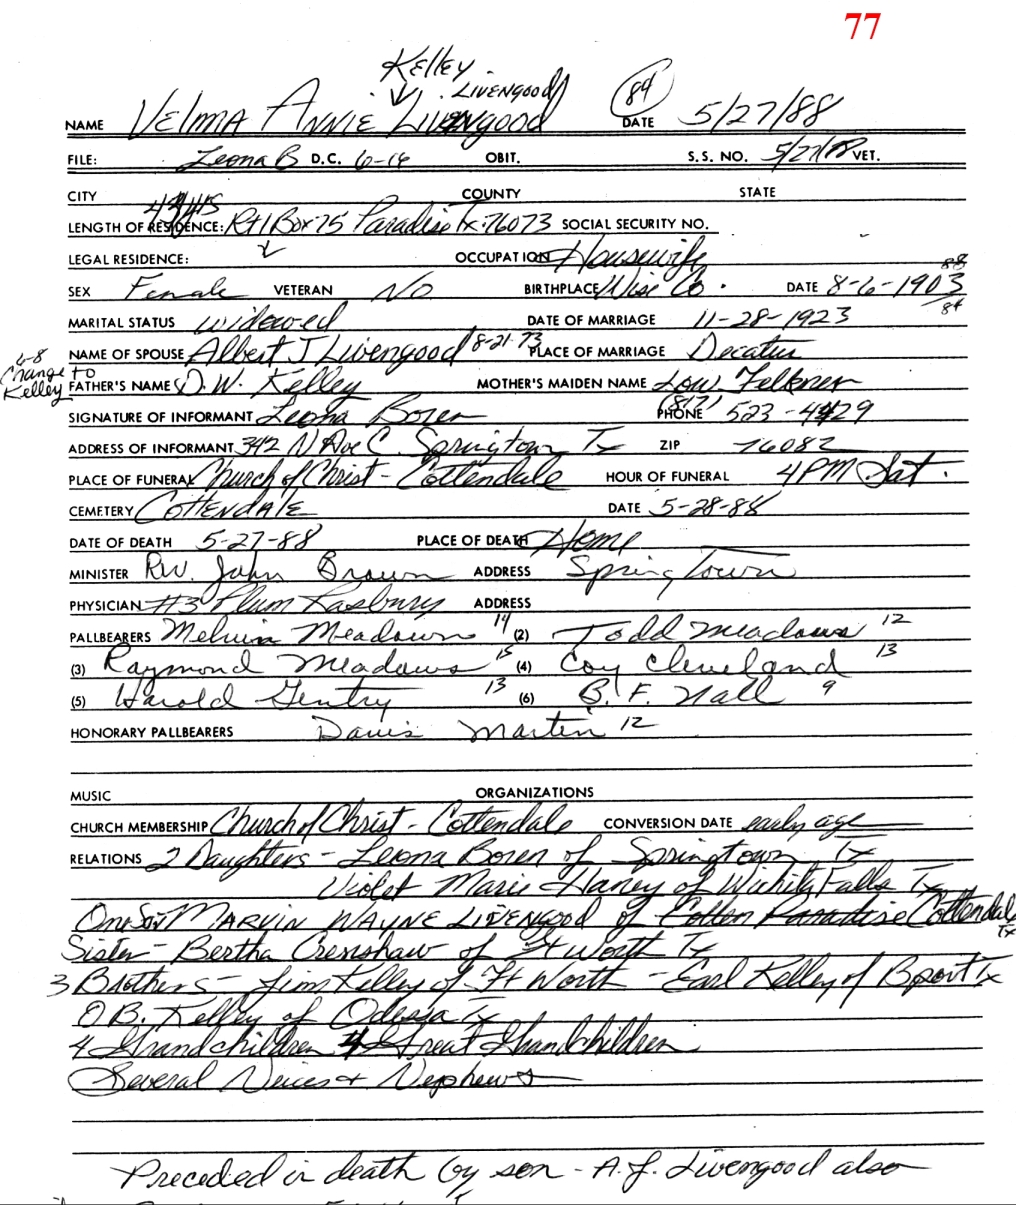 77
Kelley
Livengood
84
NAME Velma Annie Livengood DATE 5/27/88
FILE: Leona B D.C. 6-16 OBIT. S.S. NO. 5/27/88 VET.
CITY COUNTY STATE
LENGTH OF RESIDENCE: Rt 1 Box 75 Paradise Tx. 76073 SOCIAL SECURITY NO.
LEGAL RESIDENCE: OCCUPATION Housewife
88
SEX Female VETERAN No BIRTHPLACE Wise Co. DATE 8-6-1903
84
MARITAL STATUS widowed DATE OF MARRIAGE 11-28-1923
NAME OF SPOUSE Albert J Livengood 8-21-73 PLACE OF MARRIAGE Decatur
6-8 Change to Kelley
FATHER'S NAME D. W. Kelley MOTHER'S MAIDEN NAME Lou Felkner
SIGNATURE OF INFORMANT Leona Boren PHONE (817) 523-4429
ADDRESS OF INFORMANT 342 N Ave C. Springtown Tx ZIP 76082
PLACE OF FUNERAL Church of Christ - Cottendale HOUR OF FUNERAL 4PM Sat.
CEMETERY Cottendale DATE 5-28-88
DATE OF DEATH 5-27-88 PLACE OF DEATH Home
MINISTER Rev. John Brown ADDRESS Springtown
PHYSICIAN #3 Plum Rasbury ADDRESS
PALLBEARERS Melvin Meadows 14 (2) Todd Meadows 12
(3) Raymond Meadows 15 (4) Coy Cleveland 13
(5) Harold Gentry 13 (6) B. F. Nall 9
HONORARY PALLBEARERS Davis Martin 12
MUSIC ORGANIZATIONS
CHURCH MEMBERSHIP Church of Christ - Cottendale CONVERSION DATE early age
RELATIONS 2 Daughters - Leona Boren of Springtown Tx
Violet Marie Haney of Wichita Falls Tx
One Son Marvin Wayne Livengood of Cotten Paradise Cottendale Tx
Sister - Bertha Crenshaw of Ft Worth Tx
3 Brothers - Jim Kelley of Ft Worth - Earl Kelley of Bport Tx
O B. Kelley of Odessa Tx
4 Grandchildren 4 Great Grandchildren
Several Neices + Nephews
Preceded in death by son - A. J. Livengood also